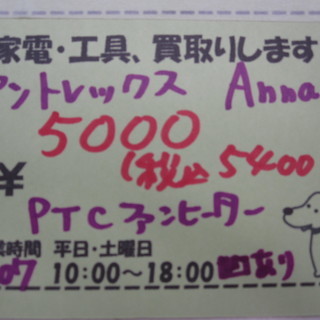 家電・工具、買取りします
アントレックス Anna
5000
(税込 5400
¥
PTCファンヒーター
業時間 平日・土曜日
07 10:00〜18:00 箱あり